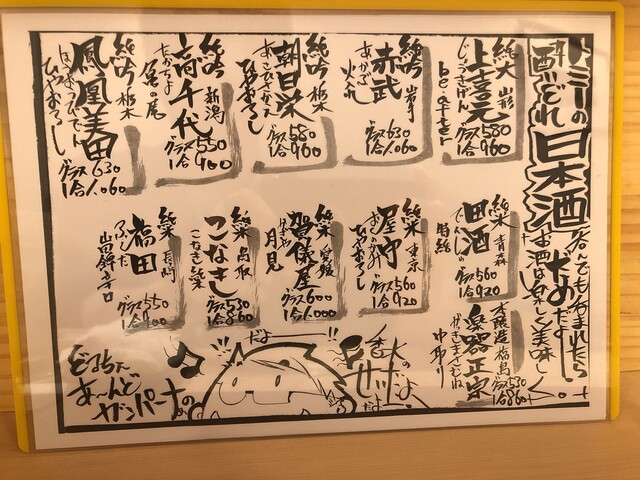 トミーの
酔いどれ
日本酒
呑んでも呑まれたら
だめだよ!
お酒は楽しく美味しく
純大 山形
上喜元
じょうきげん
グラス580
1合960
純吟 岩手
赤武
あかぶ
火入れ
グラス630
1合1.060
純吟 栃木
朝日栄
あさひさかえ
ひやおろし
グラス580
1合960
純吟 新潟
高千代
たかちよ
グラス550
1合900
純吟 栃木
鳳凰美田
ほうおうびでん
ひやおろし
グラス630
1合1.060
純米 青森
田酒
でんしゅ
グラス560
1合920
本醸造 福島
楽器正宗
がっきまさむね
中取り
グラス530
1合860
純米 東京
屋守
おくのかみ
ひやおろし
グラス560
1合920
純米 愛媛
賀儀屋
かぎや
月見
グラス600
1合1.000
純米 鳥取
こなき純米
グラス530
1合860
純米 長崎
福田
ふくだ
山田錦 辛口
グラス550
1合900
だよ!!
あ〜んど
ガンパーナの